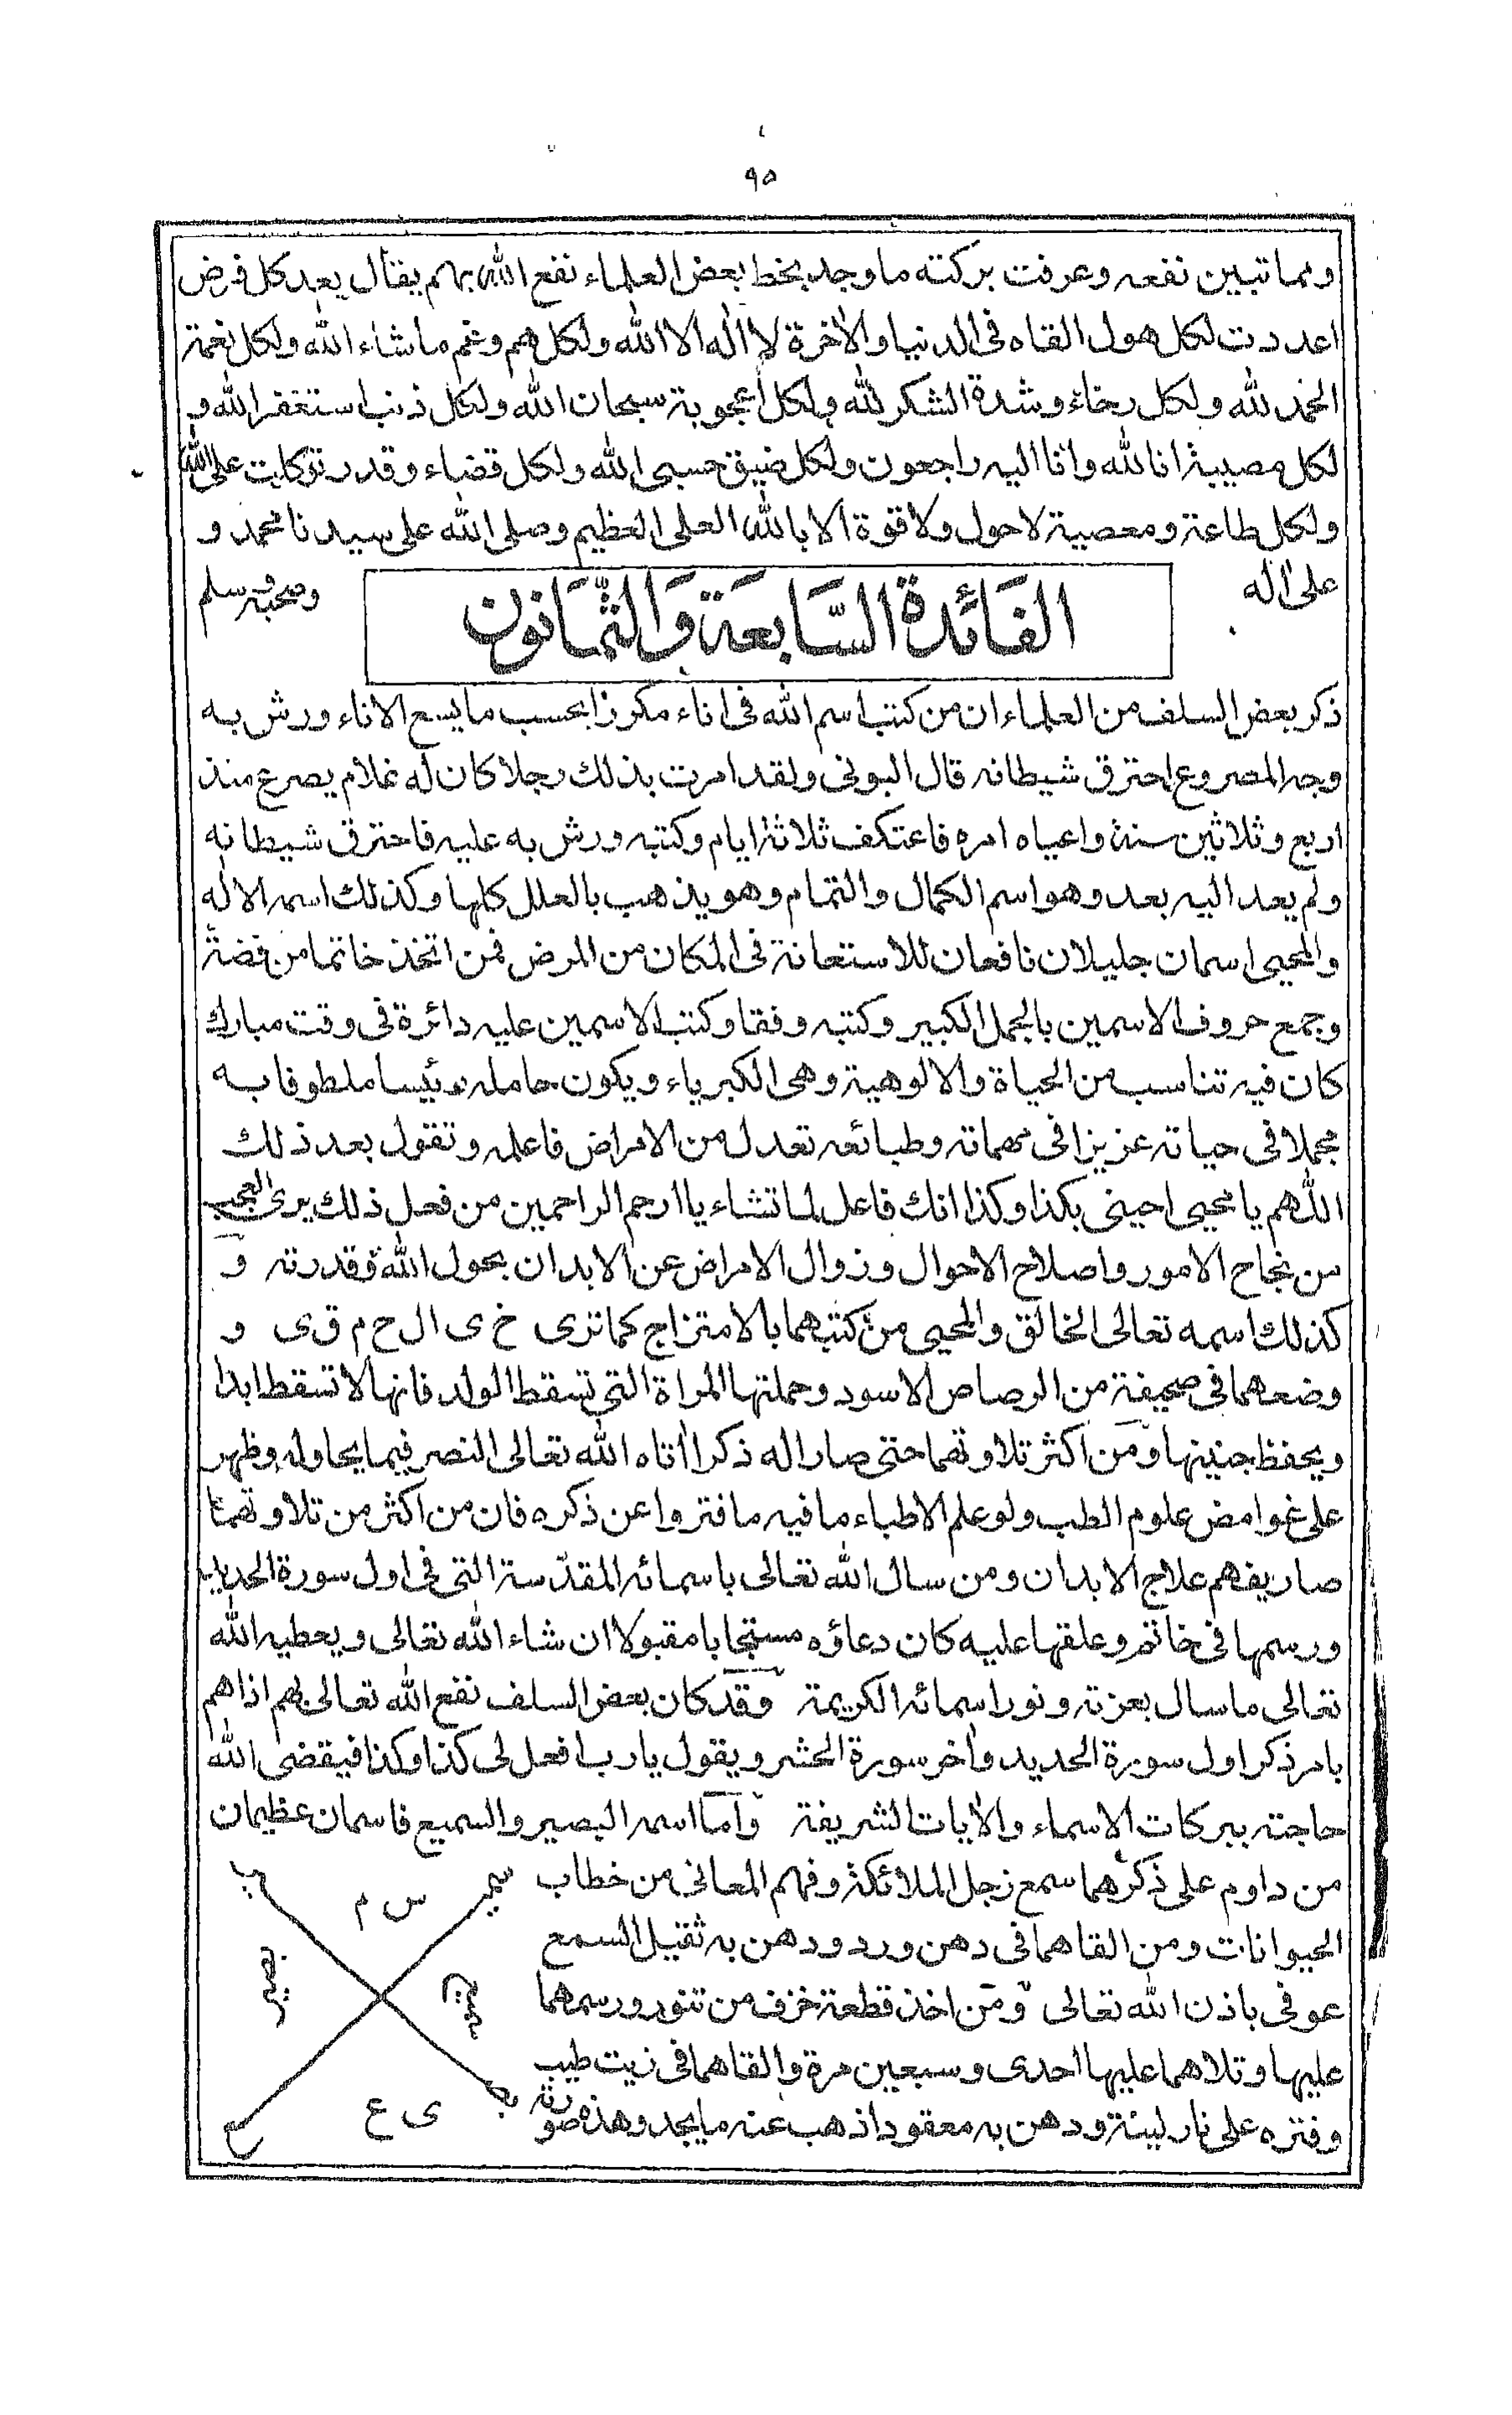 ٩٥
ومما تبين نفعه وعرفت بركته ما وجد بخط بعض العلماء نفع الله بهم يقال بعد كل فرض
اعددت لكل هول القاه فى الدنيا والاخرة لا اله الا الله ولكل هم وغم ما شاء الله ولكل نعمة
الحمد لله ولكل رخاء وشدة الشكر لله ولكل اعجوبة سبحان الله ولكل ذنب استغفر الله و
لكل مصيبة انا لله وانا اليه راجعون ولكل ضيق حسبى الله ولكل قضاء وقدر توكلت على الله
ولكل طاعة ومعصية لا حول ولا قوة الا بالله العلى العظيم وصلى الله على سيدنا محمد و
على اله وصحبه وسلم
الفَائدة السَّابعَة وَالثمَانون
ذكر بعض السلف من العلماء ان من كتب اسم الله فى اناء مكررا بحسب ما يسع الاناء ورش به
وجه المصروع احترق شيطانه قال البونى ولقد امرت بذلك رجلا كان له غلام يصرع منذ
اربع وثلاثين سنة واعياه امره فاعتكف ثلاثة ايام وكتبه ورش به عليه فاحترق شيطانه
ولم يعد اليه بعد وهو اسم الكمال والتمام وهو يذهب بالعلل كلها وكذلك اسمه الاله
والمحيى اسمان جليلان نافعان للاستعانة فى المكان من المرض فمن اتخذ خاتما من فضة
وجمع حروف الاسمين بالجمل الكبير وكتبه وفقا وكتب الاسمين عليه دائرة فى وقت مبارك
كان فيه تناسب من الحياة والالوهية وهى الكبرياء ويكون حامله رئيسا ملطوفا به
مجملا فى حياته عزيزا فى مهماته وطبائعه تعدل من الامراض فاعلمه وتقول بعد ذلك
اللهم يا محيى احينى بكذا وكذا انك فاعل لما تشاء يا ارحم الراحمين من فعل ذلك يرى العجب
من نجاح الامور واصلاح الاحوال وزوال الامراض عن الابدان بحول الله وقدرته و
كذلك اسمه تعالى الخالق والمحيى من كتبهما بالامتزاج كما ترى خ ى ال ح م ق ى و
وضعهما فى صحيفة من الرصاص الاسود وحملتها المراة التى تسقط الولد فانها لا تسقط ابدا
ويحفظ جنينها ومن اكثر تلاوتهما حتى صارا له ذكرا اتاه الله تعالى النصر فيما يحاوله وظهر
على غوامض علوم الطب ولو علم الاطباء ما فيه ما فتروا عن ذكره فان من اكثر من تلاوتهما
صار يفهم علاج الابدان ومن سال الله تعالى باسمائه المقدسة التى فى اول سورة الحديد
ورسمها فى خاتم وعلقها عليه كان دعاؤه مستجابا مقبولا ان شاء الله تعالى ويعطيه الله
تعالى ما سال بعزته ونور اسمائه الكريمة وقد كان بعض السلف نفع الله تعالى بهم اذا هم
بامر ذكر اول سورة الحديد واخر سورة الحشر ويقول يارب افعل لى كذا وكذا فيقضى الله
حاجته ببركات الاسماء والايات الشريفة واما اسمه البصير والسميع فاسمان عظيمان
من داوم على ذكرهما سمع زجل الملائكة وفهم المعانى من خطاب
الحيوانات ومن القاهما فى دهن ورد ودهن به ثقيل السمع
عوفى باذن الله تعالى ومن اخذ قطعة خزف من تنور ورسمهما
عليها وتلاهما عليها احدى وسبعين مرة والقاهما فى زيت طيب
وفتره على نار لينة ودهن به معقودا ذهب عنه ما يجد وهذه صورته
س م
بصير
سميع
ى ع